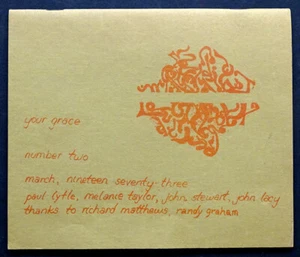 your grace
number two
march, nineteen seventy-three
paul lytle, melanie taylor, john stewart, john lacy
thanks to richard matthews, randy graham